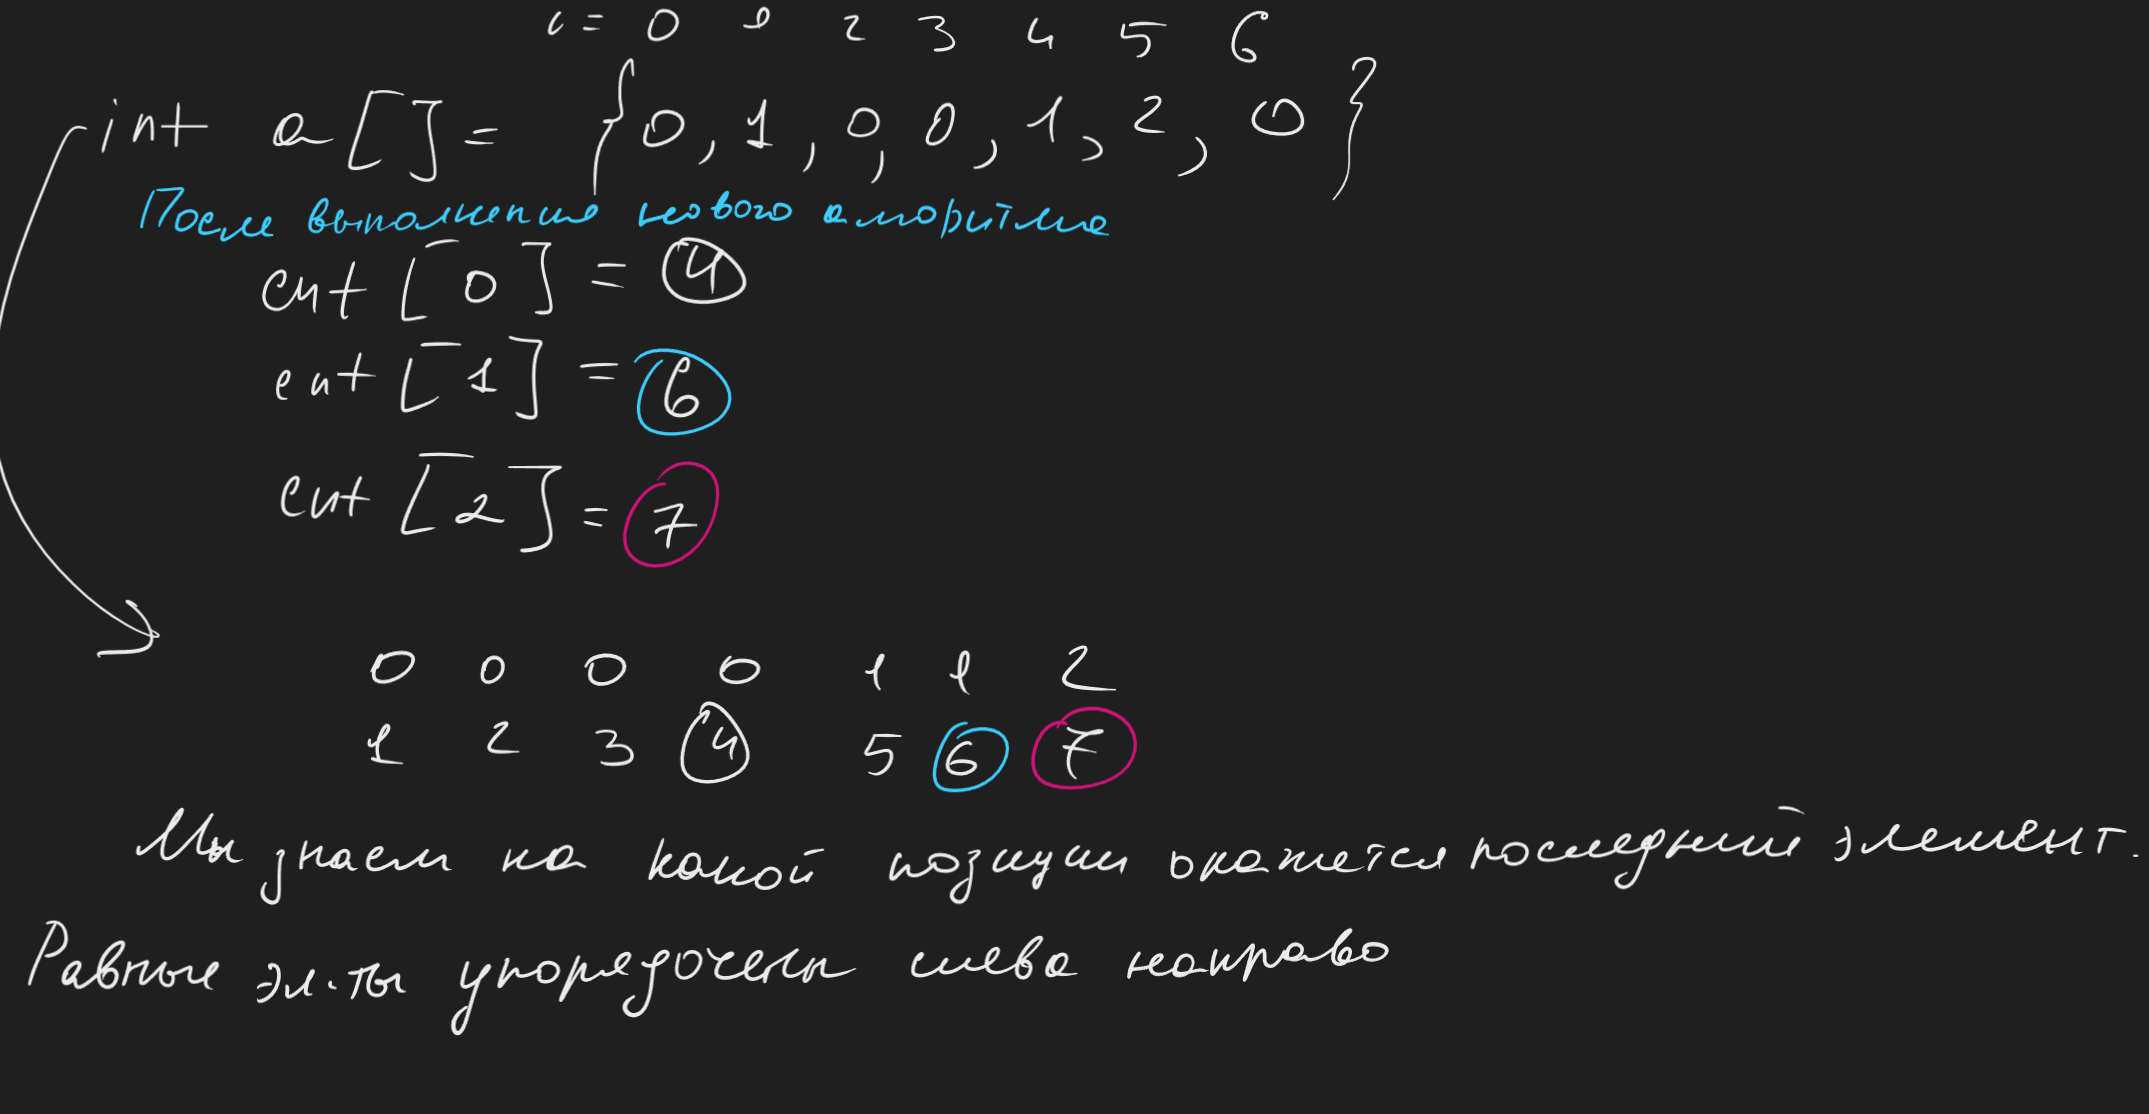 i = 0 1 2 3 4 5 6
int a[] = {0, 1, 0, 0, 1, 2, 0}
После выполнения нового алгоритма
cnt [0] = 4
cnt [1] = 6
cnt [2] = 7
0 0 0 0 1 1 2
1 2 3 4 5 6 7
Мы знаем на какой позиции окажется последний элемент.
Равные эл-ты упорядочены слева направо